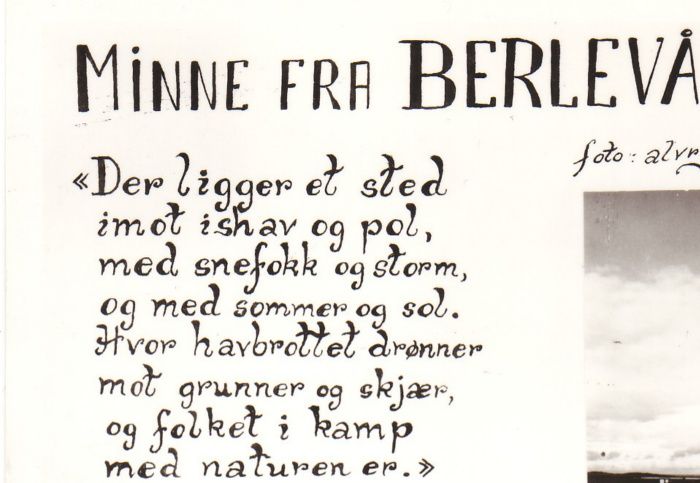 MINNE FRA BERLEVÅ
foto: alvr
«Der ligger et sted
imot ishav og pol,
med snefokk og storm,
og med sommer og sol.
Hvor havbrottet drønner
mot grunner og skjær,
og folket i kamp
med naturen er.»